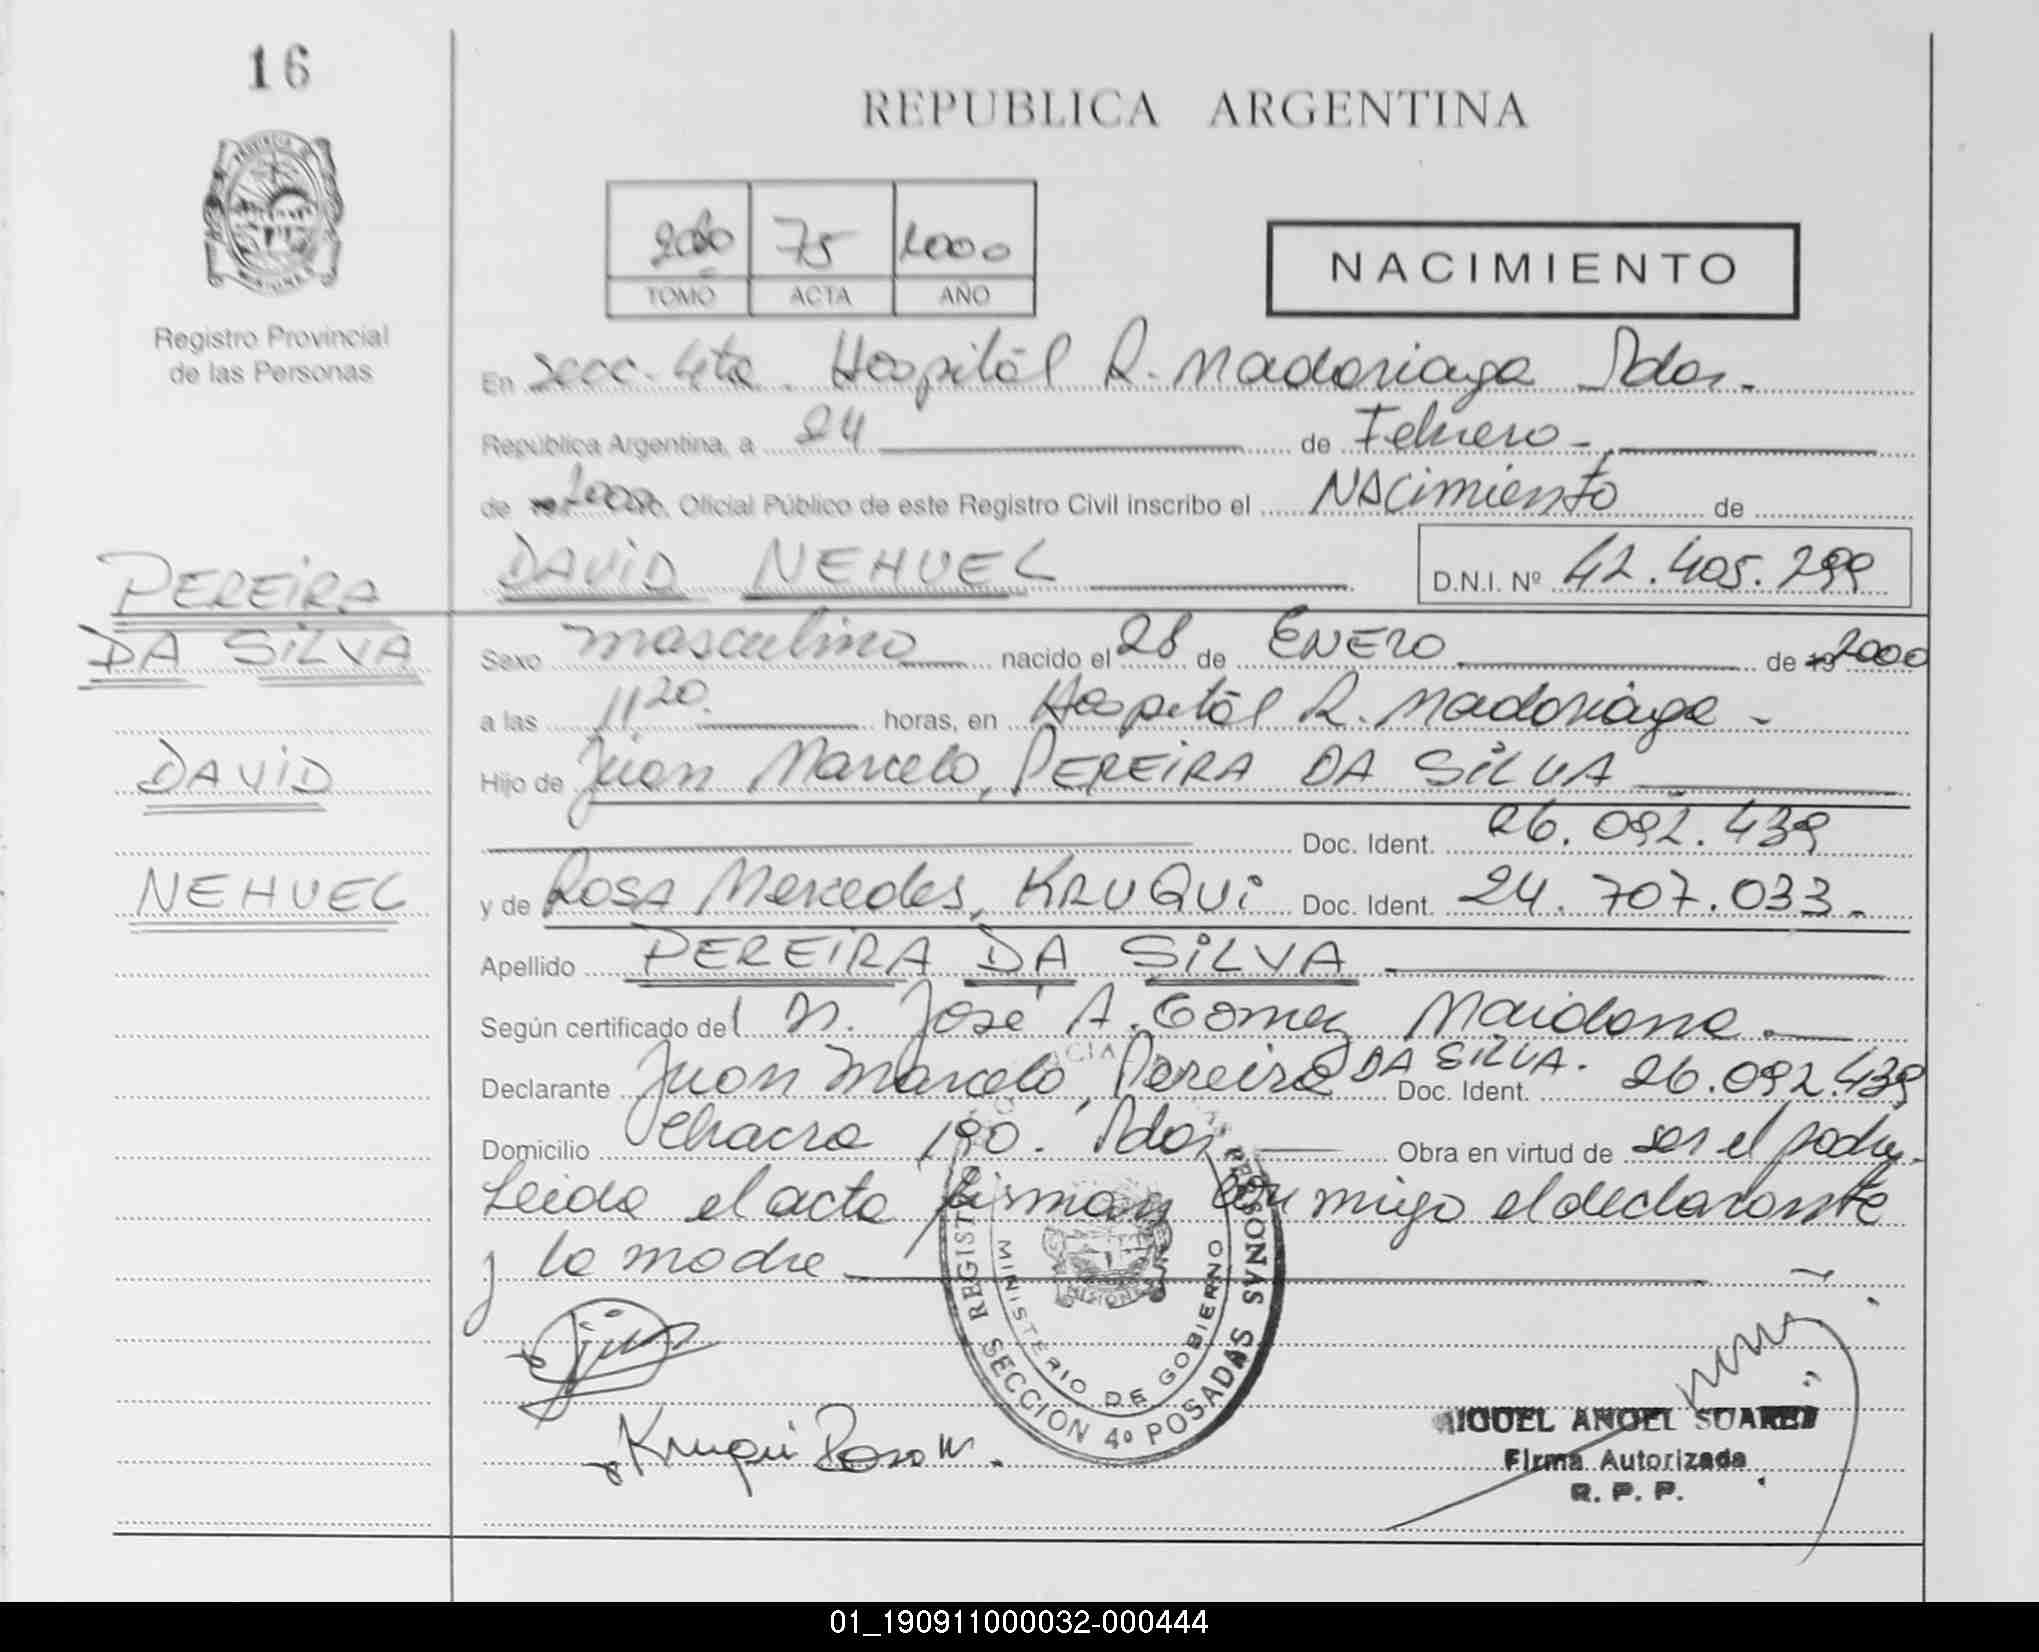 16
REPUBLICA ARGENTINA
75 2000
TOMO ACTA AÑO
NACIMIENTO
Registro Provincial
de las Personas
En Secc. 4ta. Hospitál R. Madariaga Pdas.
República Argentina, a 24 de Febrero
de 2000, Oficial Público de este Registro Civil inscribo el NACimiento de
DAViD NEHUEL D.N.I. Nº 42.405.299
PEREiRA
DA SiLVA
DAViD
NEHUEL
Sexo masculino nacido el 28 de ENERO de 19 2000
a las 11 20. horas, en Hospitál R. Madariaga
Hijo de Juan Marcelo, PEREiRA DA SiLVA
Doc. Ident. 26.092.439
y de ROSA Mercedes, KRUQUi Doc. Ident. 24.707.033
Apellido PEREiRA DA SiLVA
Según certificado del José A. Gomez Maidana
Declarante Juan Marcelo, Pereira DA SILVA. Doc. Ident. 26.092.439
Domicilio Chacra 190. Pdas. Obra en virtud de ser el padre.
Leida el acta firman conmigo el declarante
y la madre
REGISTRO PERSONAS
MINISTERIO DE GOBIERNO
MISIONES
SECCION 4º POSADAS
Kruqui Rosa M.
MIGUEL ANGEL SUAREZ
Firma Autorizada
R. P. P.
01_190911000032-000444